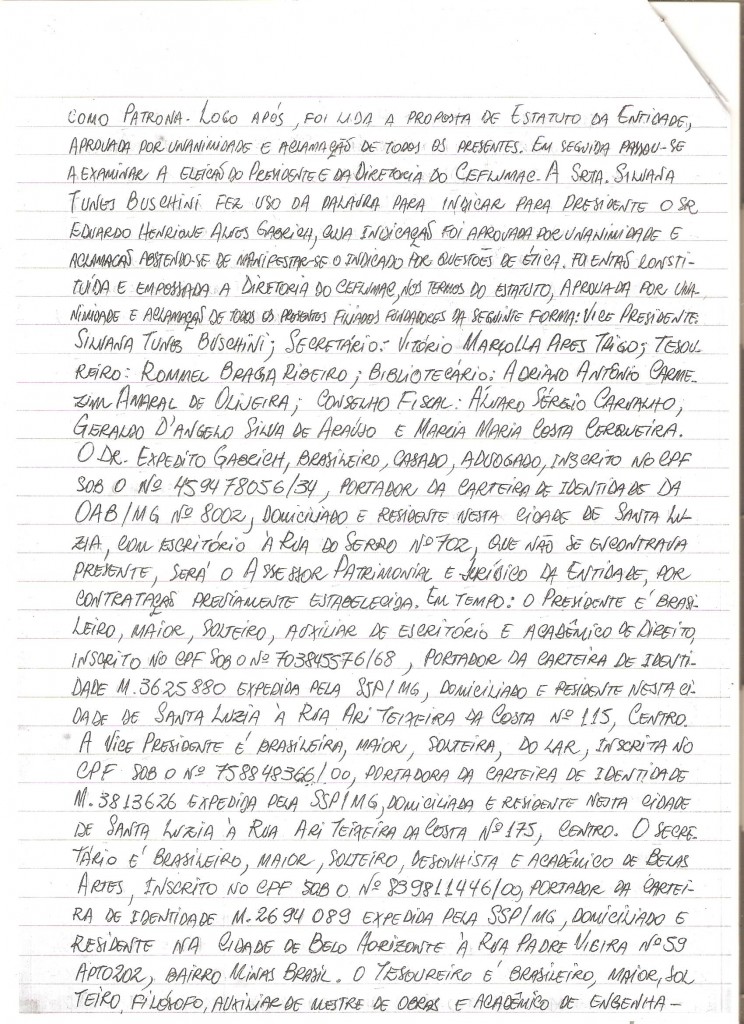 COMO PATRONA. LOGO APÓS, FOI LIDA A PROPOSTA DE ESTATUTO DA ENTIDADE,
APROVADA POR UNANIMIDADE E ACLAMAÇÃO DE TODOS OS PRESENTES. EM SEGUIDA PASSOU-SE
A EXAMINAR A ELEIÇÃO DO PRESIDENTE E DA DIRETORIA DO CEFLUMAC. A SRTA. SILVANA
TUNES BUSCHINI FEZ USO DA PALAVRA PARA INDICAR PARA PRESIDENTE O SR
EDUARDO HENRIQUE ALVES GABRICH, CUJA INDICAÇÃO FOI APROVADA POR UNANIMIDADE E
ACLAMAÇÃO ABSTENDO-SE DE MANIFESTAR-SE O INDICADO POR QUESTÕES DE ÉTICA. FOI ENTÃO CONSTI-
TUÍDA E EMPOSSADA A DIRETORIA DO CEFLUMAC, NOS TERMOS DO ESTATUTO, APROVADA POR UNA-
NIMIDADE E ACLAMAÇÃO DE TODOS OS PRESENTES FILIADOS FUNDADORES DA SEGUINTE FORMA: VICE PRESIDENTE:
SILVANA TUNES BUSCHINI; SECRETÁRIO: VITÓRIO MARÇOLLA APES TRIGO; TESOU-
REIRO: ROMMEL BRAGA RIBEIRO; BIBLIOTECÁRIO: ADRIANO ANTÔNIO CARME-
ZIM AMARAL DE OLIVEIRA; CONSELHO FISCAL: ÁLVARO SÉRGIO CARVALHO,
GERALDO D'ANGELO SILVA DE ARAÚJO E MARCIA MARIA COSTA CERQUEIRA.
O DR. EXPEDITO GABRICH, BRASILEIRO, CASADO, ADVOGADO, INSCRITO NO CPF
SOB O Nº 459478056/34, PORTADOR DA CARTEIRA DE IDENTIDADE DA
OAB/MG Nº 8002, DOMICILIADO E RESIDENTE NESTA CIDADE DE SANTA LU-
ZIA, COM ESCRITÓRIO À RUA DO SERRO Nº 702, QUE NÃO SE ENCONTRAVA
PRESENTE, SERÁ O ASSESSOR PATRIMONIAL E JURÍDICO DA ENTIDADE, POR
CONTRATAÇÃO PREVIAMENTE ESTABELECIDA. EM TEMPO: O PRESIDENTE É BRASI-
LEIRO, MAIOR, SOLTEIRO, AUXILIAR DE ESCRITÓRIO E ACADÊMICO DE DIREITO,
INSCRITO NO CPF SOB O Nº 703845576/68, PORTADOR DA CARTEIRA DE IDENTI-
DADE M.3625880 EXPEDIDA PELA SSP/MG, DOMICILIADO E RESIDENTE NESTA CI-
DADE DE SANTA LUZIA À RUA ARI TEIXEIRA DA COSTA Nº 115, CENTRO.
A VICE PRESIDENTE É BRASILEIRA, MAIOR, SOLTEIRA, DO LAR, INSCRITA NO
CPF SOB O Nº 758848366/00, PORTADORA DA CARTEIRA DE IDENTIDADE
M.3813626 EXPEDIDA PELA SSP/MG, DOMICILIADA E RESIDENTE NESTA CIDADE
DE SANTA LUZIA À RUA ARI TEIXEIRA DA COSTA Nº 175, CENTRO. O SECRE-
TÁRIO É BRASILEIRO, MAIOR, SOLTEIRO, DESENHISTA E ACADÊMICO DE BELAS
ARTES, INSCRITO NO CPF SOB O Nº 839811446/00, PORTADOR DA CARTEI-
RA DE IDENTIDADE M.2694089 EXPEDIDA PELA SSP/MG, DOMICILIADO E
RESIDENTE NA CIDADE DE BELO HORIZONTE À RUA PADRE VIEIRA Nº 59
APTO202, BAIRRO MINAS BRASIL. O TESOUREIRO É BRASILEIRO, MAIOR, SOL
TEIRO, FILÓSOFO, AUXILIAR DE MESTRE DE OBRAS E ACADÊMICO DE ENGENHA-